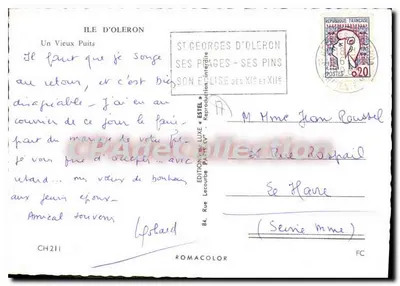 ILE D'OLERON
Un Vieux Puits
Il faut que je songe
au retour, et c'est bien
désagréable. J'ai eu au
courrier de ce jour le faire
part du mariage de votre
je vous prie d'accepter avec
retard mes vœux de bonheur
aux jeunes époux.
Amical souvenir
CH211
EDITIONS DE LUXE « ESTEL »
84, Rue Lecourbe PARIS XV
Reproduction interdite
ROMACOLOR
ST GEORGES D'OLERON
SES PLAGES - SES PINS
SON EGLISE DES XIE ET XIIE
REPUBLIQUE FRANCAISE
POSTES 0,20
M Mme Jean Roussel
Rue Raspail
Le Havre
(Seine Mme)
FC